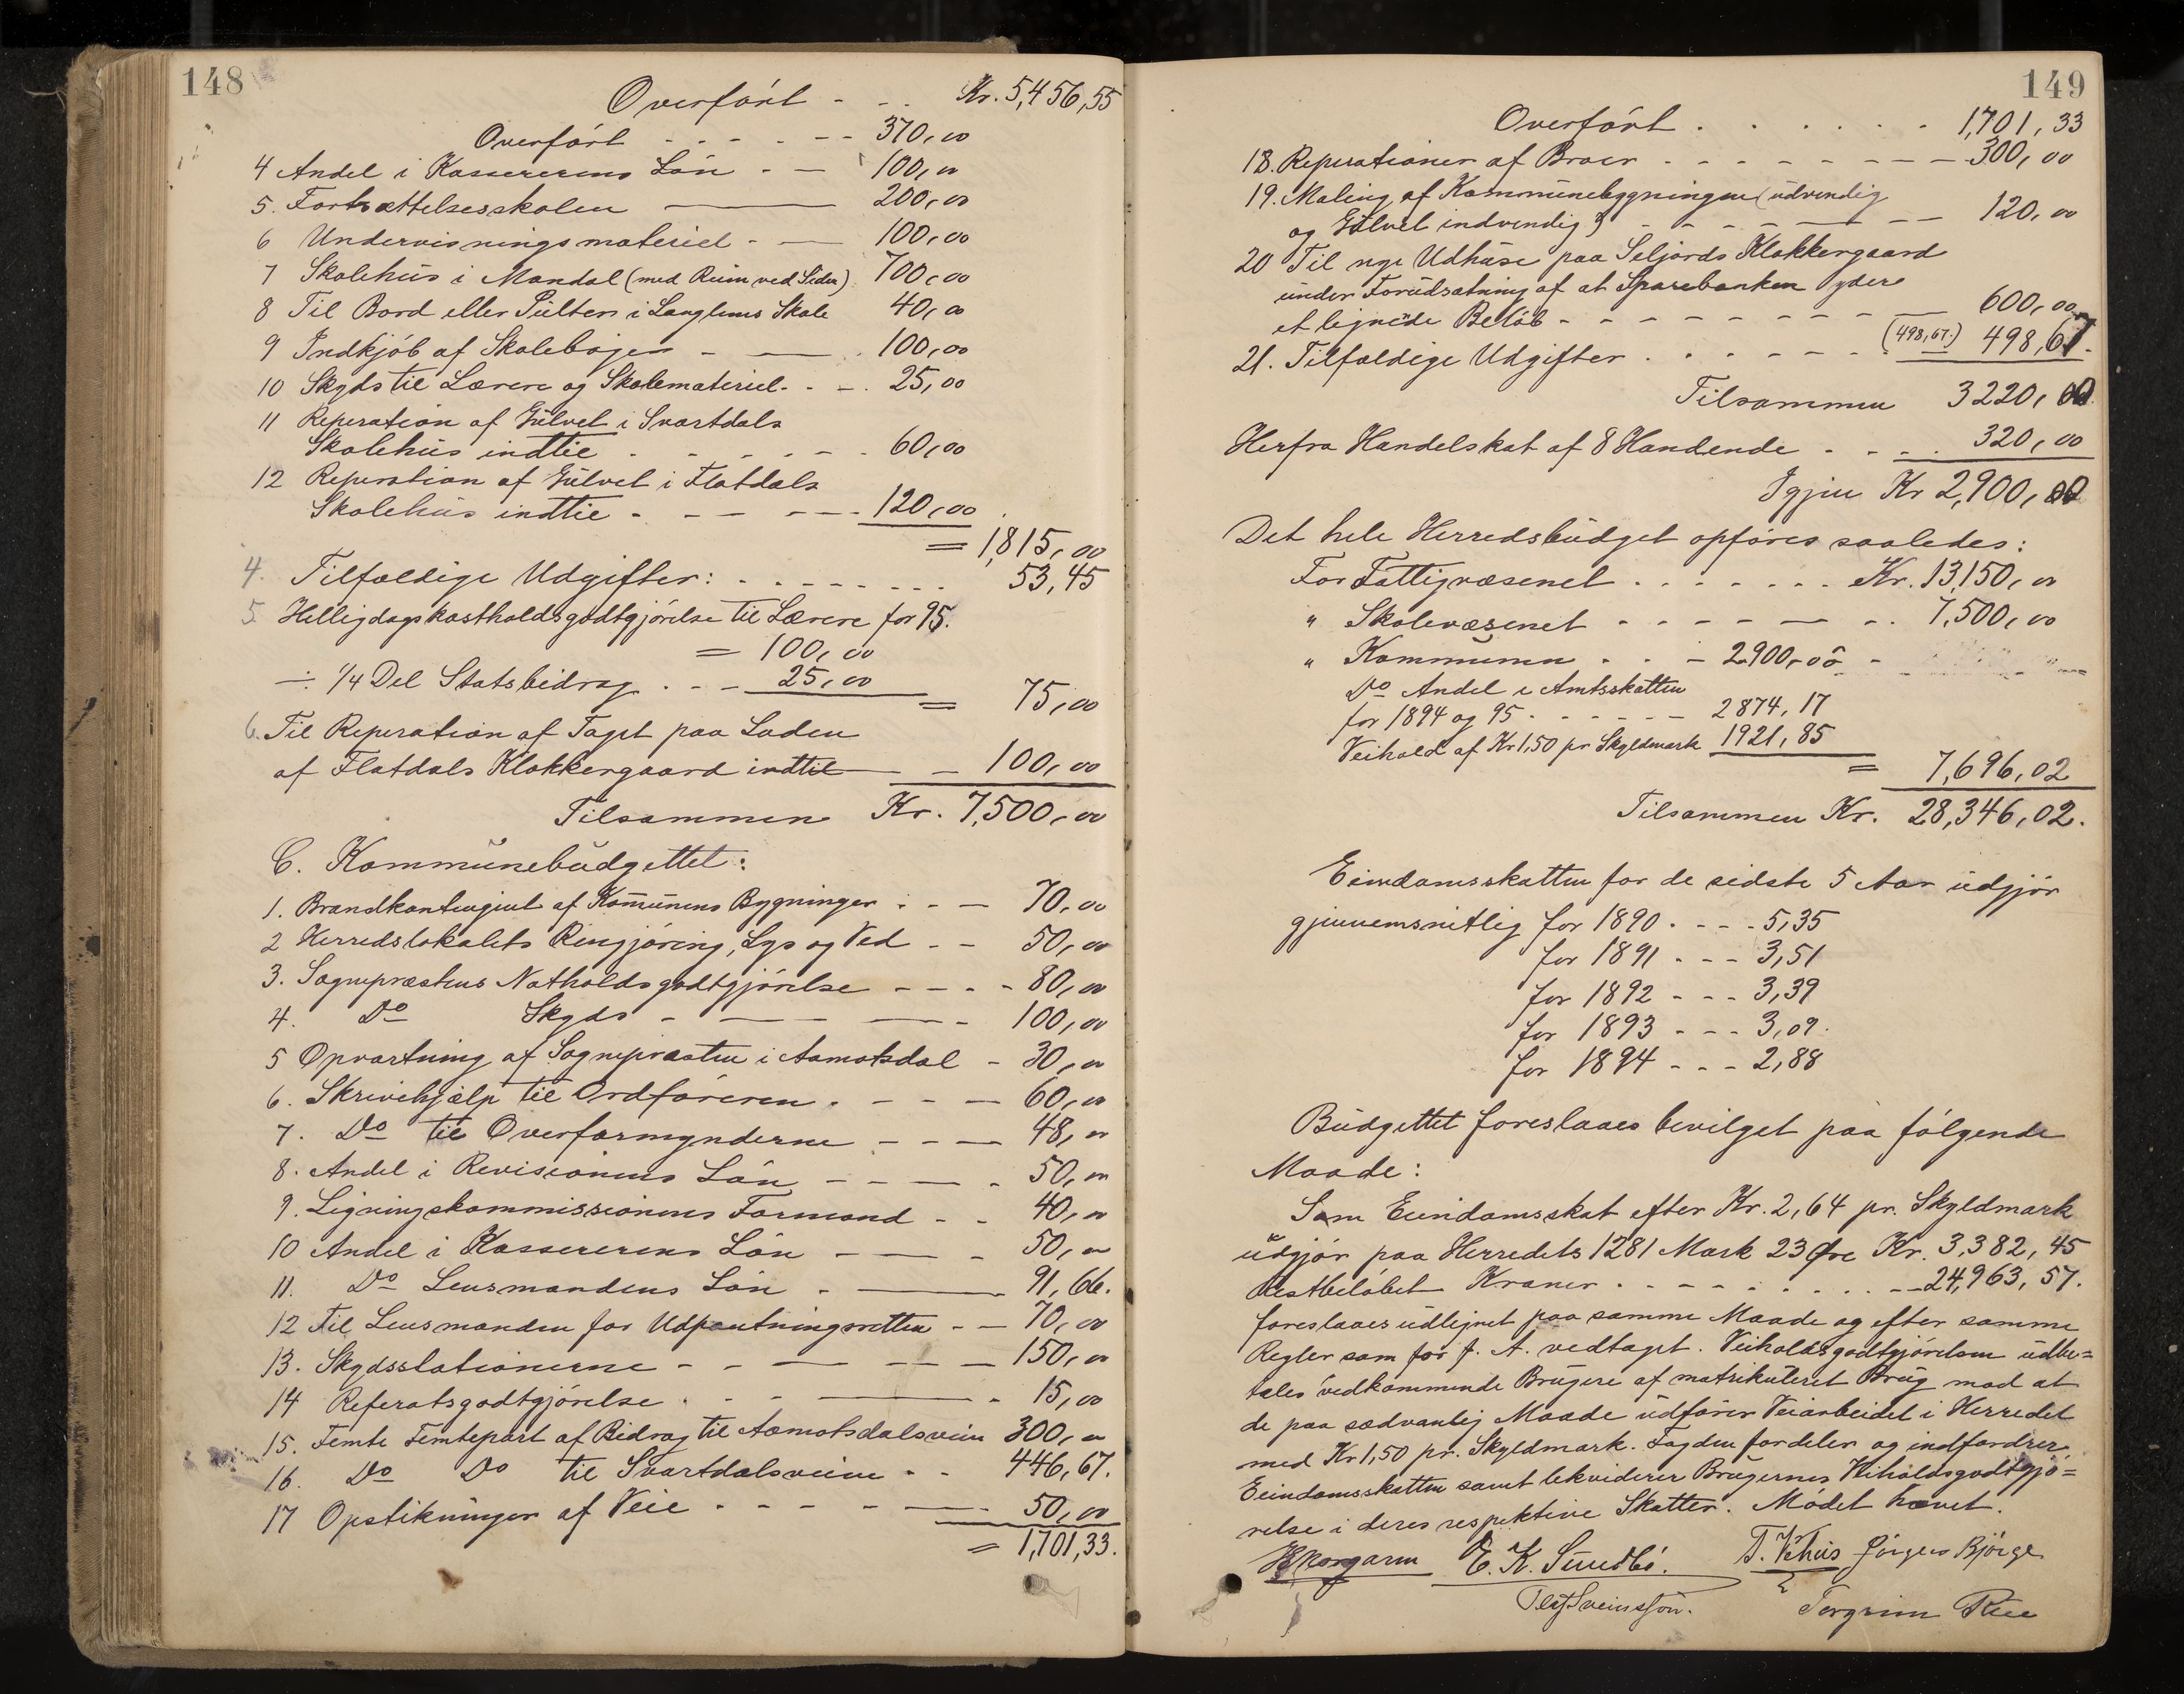 148
Overført - - - Kr. 5,456,55
Overført - - - - - - 370,00
4 Andel i Kassererens Løn - — 100,00
5. Fortsættelsesskolen — 200,00
6 Undervisningsmateriel - — 100,00
7 Skolehus i Mandal (med Ruim ved Siden) 700,00
8 Til Bord eller Pulter i Langlims Skole 40,00
9 Indkjøb af Skolebøger - — 100,00
10 Skyds til Lærere og Skolemateriel - - - 25,00
11 Reperation af Gulvet i Svartdals
Skolehus indtil - - - - - - 60,00
12 Reperation af Gulvet i Flatdals
Skolehus indtil - - — - - - 120,00
= 1,815,00
4. Tilfældige Udgifter: - - - - - - - - 53,45
5. Helligdagskostholdsgodtgjørelse til Lærere for 95.
= 100,00
÷ 1/4 Del Statsbidrag - - - 25,00
= 75,00
6. Til Reperation af Taget paa Laden
af Flatdals Klokkergaard indtil — - 100,00
Tilsammen Kr. 7,500,00
C. Kommünebüdgettet:
1. Brandkontingent af Komünens Bygninger - - - 70,00
2 Herredslokalets Ringjøring, Lys og Ved - - 50,00
3. Sognepræstens Natholdsgodtgjørelse - - - - 80,00
4. Do Skyds - — — - 100,00
5 Opvartning af Sognepræsten i Aamotsdal - 30,00
6. Skrivehjælp til Ordføreren - - - — 60,00
7. Do til Overformynderne - - - — 48,00
8. Andel i Revisionens Løn - - — - 50,00
9. Ligningskommissionens Formand - - 40,00
10 Andel i Kassererens Løn - — - 50,00
11. Do Lensmandens Løn - — 91,66.
12 Til Lensmanden for Udpantningsretten - - 70,00
13. Skydsstationerne - - — - - - 150,00
14 Referatsgodtgjørelse - - — - 15,00
15. Femte Femtepart af Bidrag til Aamotsdalsveien 300,00
16. Do Do til Svartdalsveien - - 446,67.
17 Opstikninger af Veie - - - - — - 50,00
= 1,701,33.
149
Overført - - - - - - - 1,701,33
18. Reperationer af Broer - - - - - - - - 300,00
19. Maling af Kommünebygningen (udvendig
og Gulvet indvendig) - - - — - - 120,00
20 Til nye Udhüse paa Seljords Klokkergaard
ünder Forudsætning af at Sparebanken yder
et lignede Beløb - - - - - - - - — 600,00
21. Tilfældige Udgifter - - - - - - - (498,67.) 498,67.
Tilsammen 3220,00
Herfra Handelskat af 8 Handlende - - - - 320,00
Igjen Kr 2,900,00
Det hele Herredsbüdget opføres saaledes:
For Fattigvæsenet - - - - - - - Kr. 13,150,00
" Skolevæsenet - - - - - - - 7,500,00
" Kommunen - - - 2900,00 -
Do Andel i Amtsskatten
for 1894 og 95 - - - - - - 2874,17
Veihold af Kr 1,50 pr Skyldmark 1921,85
= 7,696,02
Tilsammen Kr. 28,346,02.
Eiendomsskatten for de sidste 5 Aar üdgjør
gjennemsnitlig for 1890 - - - - 5,35
for 1891 - - - 3,51
for 1892 - - - 3,39
for 1893 - - - 3,09.
for 1894 - - - 2,88
Büdgettet foreslaaes bevilget paa følgende
Maade:
Som Eiendomsskat efter Kr. 2,64 pr. Skyldmark
üdgjør paa Herredets 1281 Mark 23 Øre Kr. 3,382,45
Restbeløbet Kroner - - - - - - - - - 24,963,57.
foreslaaes üdlignet paa samme Maade og efter samme
Regler som for f. A. vedtaget. Veiholdsgodtgjørelsen üdbe=
tales vedkommende Brügere af matrikuleret Brüg mod at
de paa sædvanlig Maade üdfører Veiarbeidet i Herredet
med Kr 1,50 pr. Skyldmark. Fogden fordeler og indfordrer
Eiendomsskatten samt lekviderer Brügernes Veiholdsgodtgjø=
relse i deres respektive Skatter. Mødet hævet.
E. K. Sundbö. T. Vehüs Jørgen Bjørge
Olaf Sveinsson. Torgrim Rue